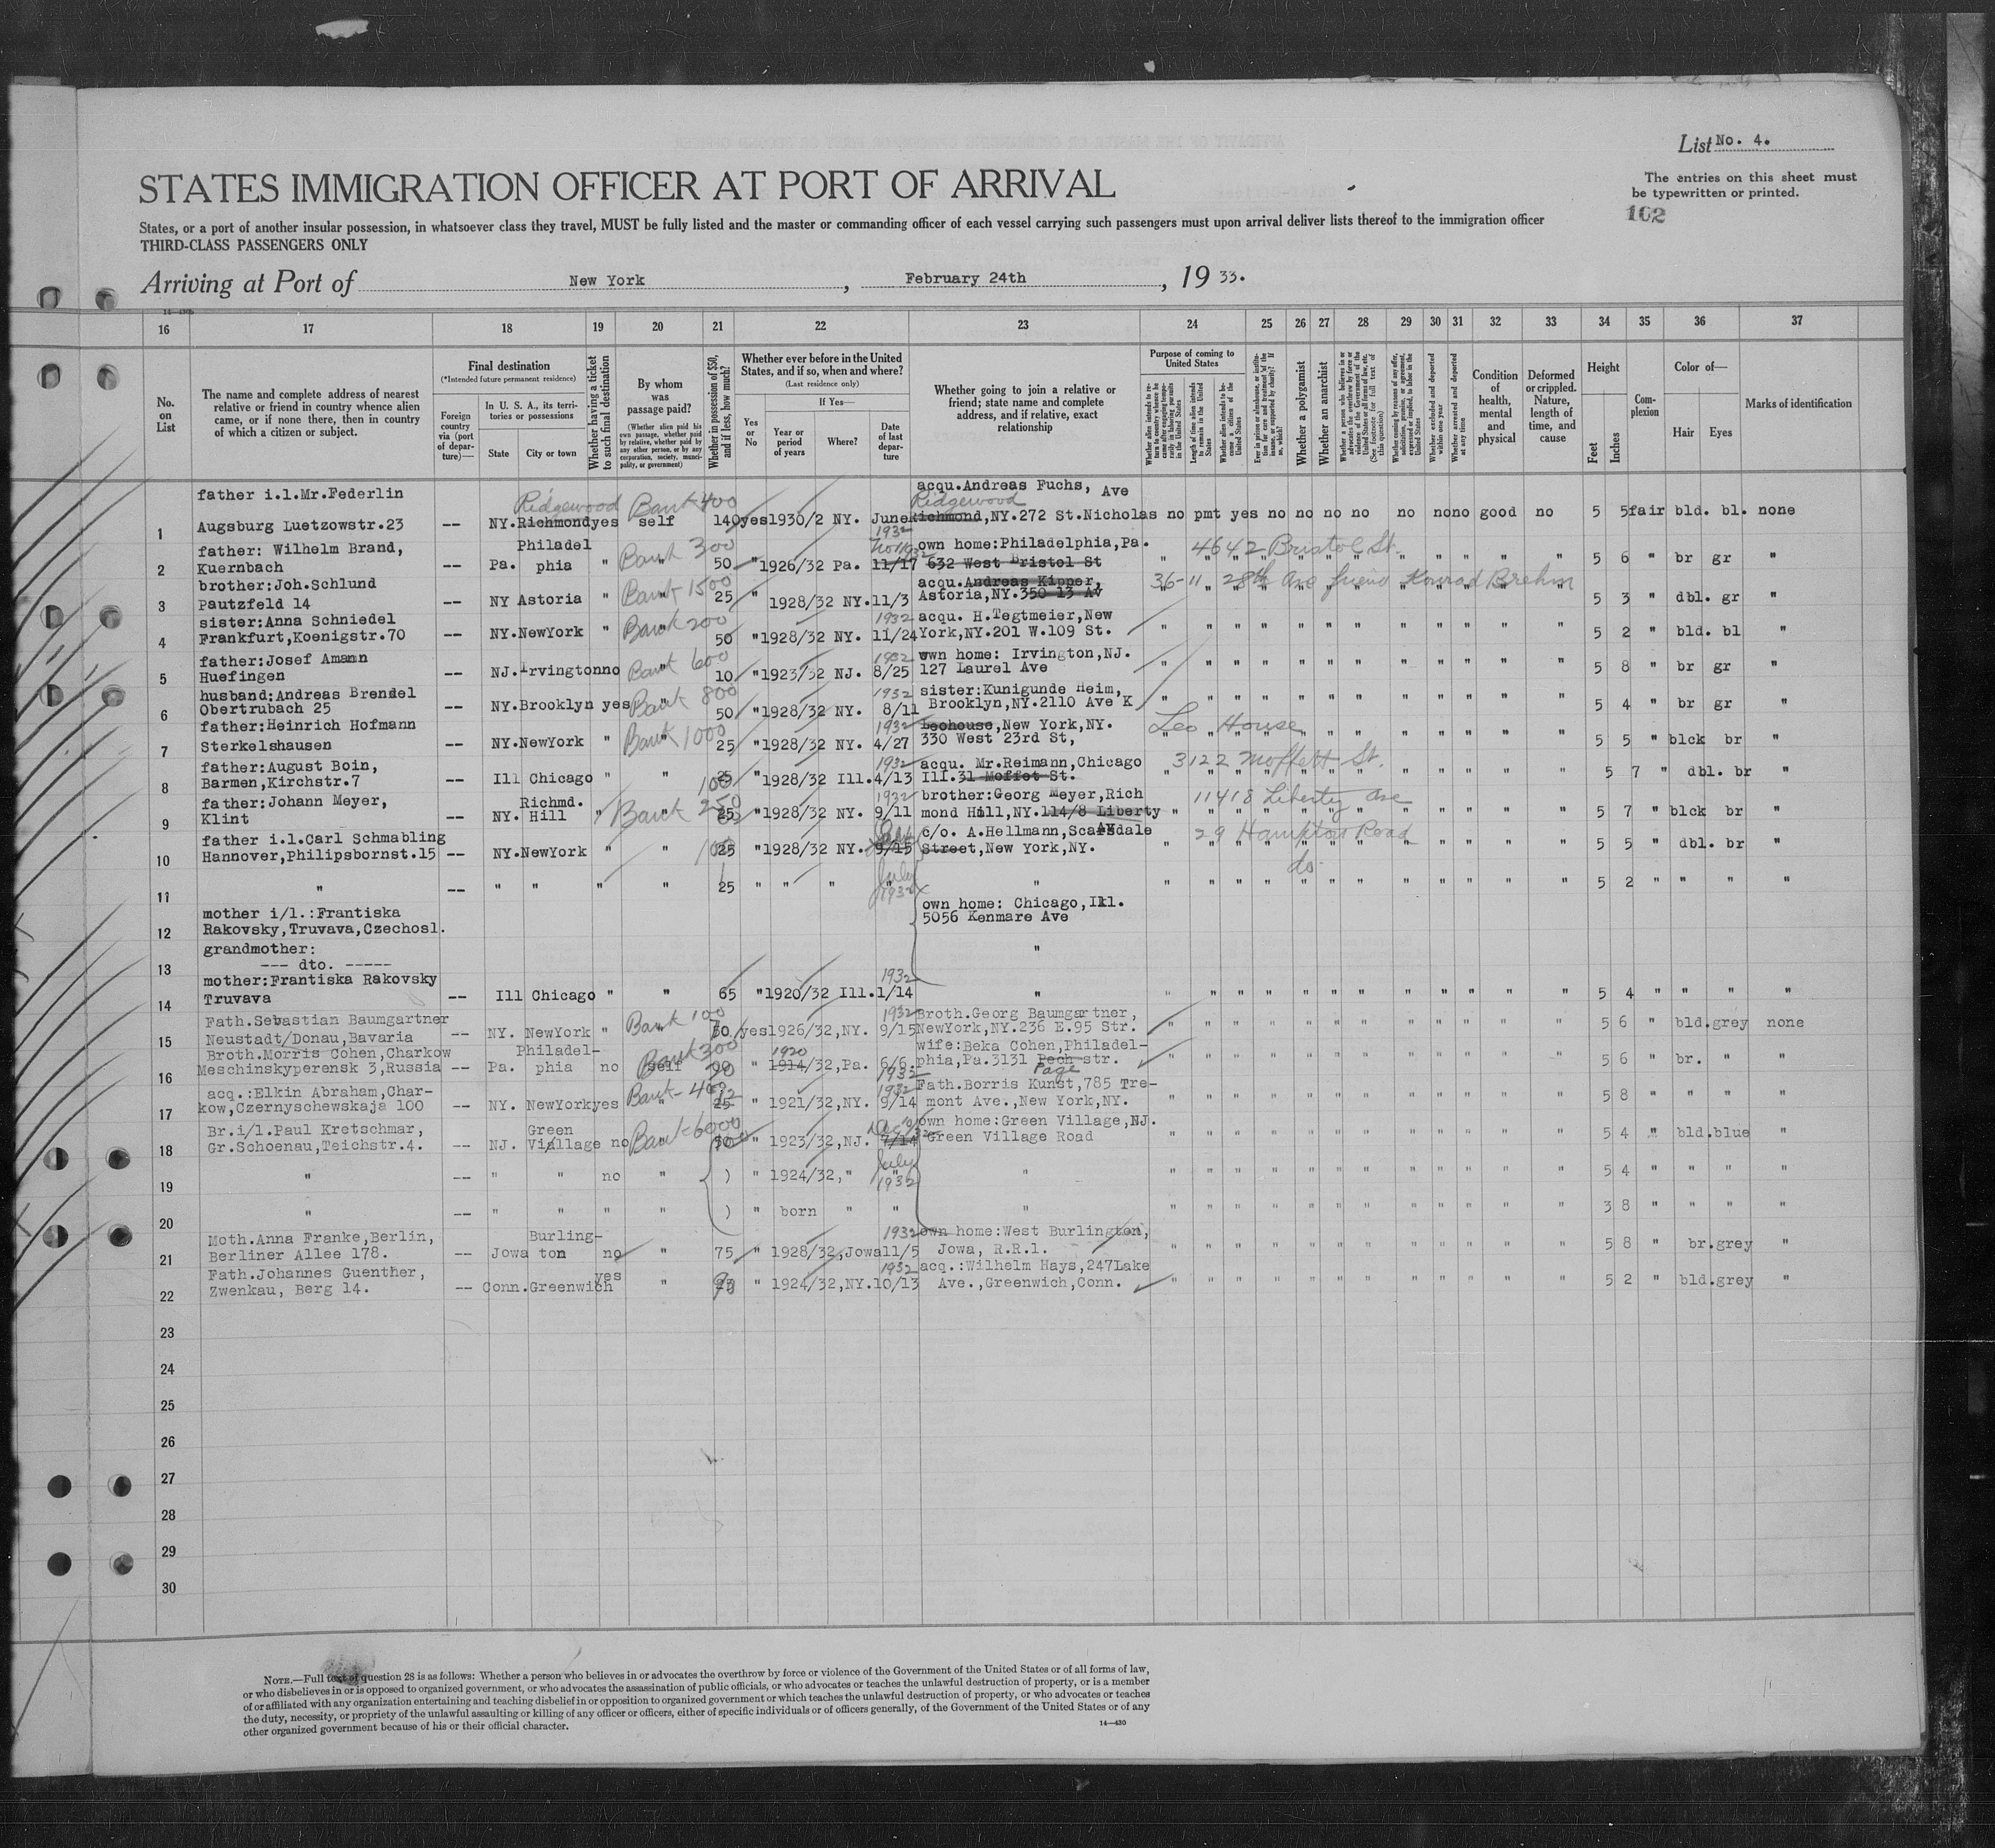 List No. 4.
The entries on this sheet must
be typewritten or printed.
102
STATES IMMIGRATION OFFICER AT PORT OF ARRIVAL
States, or a port of another insular possession, in whatsoever class they travel, MUST be fully listed and the master or commanding officer of each vessel carrying such passengers must upon arrival deliver lists thereof to the immigration officer
THIRD-CLASS PASSENGERS ONLY
Arriving at Port of New York, February 24th, 19 33.
16 17 18 19 20 21 22 23 24 25 26 27 28 29 30 31 32 33 34 35 36 37
No. on List
The name and complete address of nearest relative or friend in country whence alien came, or if none there, then in country of which a citizen or subject.
Final destination
(*Intended future permanent residence)
Foreign country via (port of departure)—
In U. S. A., its territories or possessions
State
City or town
Whether having a ticket to such final destination
By whom was passage paid?
(Whether alien paid his own passage, whether paid by relative, whether paid by any other person, or by any corporation, society, municipality, or government)
Whether in possession of $50, and if less, how much?
Whether ever before in the United States, and if so, when and where?
(Last residence only)
Yes or No
If Yes—
Year or period of years
Where?
Date of last departure
Whether going to join a relative or friend; state name and complete address, and if relative, exact relationship
Purpose of coming to United States
Length of time alien intends to remain in the United States
Whether alien intends to become a citizen of the United States
Whether a polygamist
Whether an anarchist
Whether excluded and deported within one year
Whether arrested and deported at any time
Condition of health, mental and physical
Deformed or crippled. Nature, length of time, and cause
Height
Feet
Inches
Complexion
Color of—
Hair
Eyes
Marks of identification
1 father i.l.Mr.Federlin Augsburg Luetzowstr.23 -- NY. Richmond Ridgewood yes self Bank 400 140 yes 1930/2 NY. June 1932 acqu.Andreas Fuchs, Ridgewood Richmond,NY.272 St.Nicholas Ave no pmt yes no no no no no no no good no 5 5 fair bld. bl. none
2 father: Wilhelm Brand, Kuernbach -- Pa. Philadel phia " Bank 300 " 50 " 1926/32 Pa. 11/17 own home:Philadelphia,Pa. 632 West Bristol St 4642 Bristol St. 5 6 " br gr "
3 brother:Joh.Schlund Pautzfeld 14 -- NY Astoria " Bank 1500 " 25 " 1928/32 NY. 11/3 acqu.Andreas Kipper, Astoria,NY.350 13 Av 36-11 28th Ave friend Konrad Brehm 5 3 " dbl. gr "
4 sister:Anna Schniedel Frankfurt,Koenigstr.70 -- NY. NewYork " Bank 200 50 " 1928/32 NY. 11/24 1932 acqu. H.Tegtmeier,New York,NY.201 W.109 St. 5 2 " bld. bl "
5 father:Josef Amann Huefingen -- NJ. Irvington no Bank 600 " 10 " 1923/32 NJ. 8/25 1932 own home: Irvington,NJ. 127 Laurel Ave 5 8 " br gr "
6 husband:Andreas Brendel Obertrubach 25 -- NY. Brooklyn yes Bank 800 " 50 " 1928/32 NY. 8/11 1932 sister:Kunigunde Heim, Brooklyn,NY.2110 Ave K 5 4 " br gr "
7 father:Heinrich Hofmann Sterkelshausen -- NY. NewYork " Bank 1000 " 25 " 1928/32 NY. 4/27 1932 Leohouse,New York,NY. 330 West 23rd St, Leo House 5 5 " blck br "
8 father:August Boin, Barmen,Kirchstr.7 -- Ill Chicago " " 100 " 1928/32 Ill. 4/13 1932 acqu. Mr.Reimann,Chicago Ill.31 Moffet St. 3122 Moffett St. 5 7 " dbl. br "
9 father:Johann Meyer, Klint -- NY. Richmd. Hill " Bank 250 25 " 1928/32 NY. 9/11 1932 brother:Georg Meyer,Rich mond Hill,NY.114/8 Liberty Av 11418 Liberty Ave 5 7 " blck br "
10 father i.l.Carl Schmabling Hannover,Philipsbornst.15 -- NY. NewYork " " 100 25 " 1928/32 NY. 9/15 c/o. A.Hellmann,Scarsdale Street,New York,NY. 29 Hampton Road 5 5 " dbl. br "
11 " -- " " " " 25 " " " July 1932 " do 5 2 " " " "
12 mother i/l.:Frantiska Rakovsky,Truvava,Czechosl. own home: Chicago,Ill. 5056 Kenmare Ave
13 grandmother: --- dto. ----- "
14 mother:Frantiska Rakovsky Truvava -- Ill Chicago " " 65 " 1920/32 Ill. 1/14 1932 " 5 4 " " " "
15 Fath.Sebastian Baumgartner Neustadt/Donau,Bavaria -- NY. NewYork " Bank 100 " yes 1926/32,NY. 9/15 1932 Broth.Georg Baumgartner, NewYork,NY.236 E.95 Str. 5 6 " bld.grey none
16 Broth.Morris Cohen,Charkow Meschinskyperensk 3,Russia -- Pa. Philadel- phia no self Bank 300 " 1914 1920 /32,Pa. 6/6. 1932 wife:Beka Cohen,Philadel- phia,Pa.3131 Pech str. Page 5 6 " br. " "
17 acq.:Elkin Abraham,Char- kow,Czernyschewskaja 100 -- NY. NewYork yes " 25 " 1921/32,NY. 9/14 1932 Fath.Borris Kunst,785 Tre- mont Ave.,New York,NY. 5 8 " " " "
18 Br.i/l.Paul Kretschmar, Gr.Schoenau,Teichstr.4. -- NJ. Green Village no Bank 6000 " 1923/32,NJ. 7/14 own home:Green Village,NJ. Green Village Road 5 4 " bld.blue "
19 " -- " " no " ) " 1924/32," July 1932 " 5 4 " " " "
20 " -- " " " " ) " born " " " 3 8 " " " "
21 Moth.Anna Franke,Berlin, Berliner Allee 178. -- Jowa Burling- ton no " 75 " 1928/32,Jowa 11/5 1932 own home:West Burlington, Jowa, R.R.1. 5 8 " br.grey "
22 Fath.Johannes Guenther, Zwenkau, Berg 14. -- Conn. Greenwich yes " " 1924/32,NY. 10/13 1932 acq.:Wilhelm Hays,247Lake Ave.,Greenwich,Conn. 5 2 " bld.grey "
23
24
25
26
27
28
29
30
NOTE.—Full text of question 28 is as follows: Whether a person who believes in or advocates the overthrow by force or violence of the Government of the United States or of all forms of law,
or who disbelieves in or is opposed to organized government, or who advocates the assassination of public officials, or who advocates or teaches the unlawful destruction of property, or is a member
of or affiliated with any organization entertaining and teaching disbelief in or opposition to organized government or which teaches the unlawful destruction of property, or who advocates or teaches
the duty, necessity, or propriety of the unlawful assaulting or killing of any officer or officers, either of specific individuals or of officers generally, of the Government of the United States or of any
other organized government because of his or their official character.
14—430